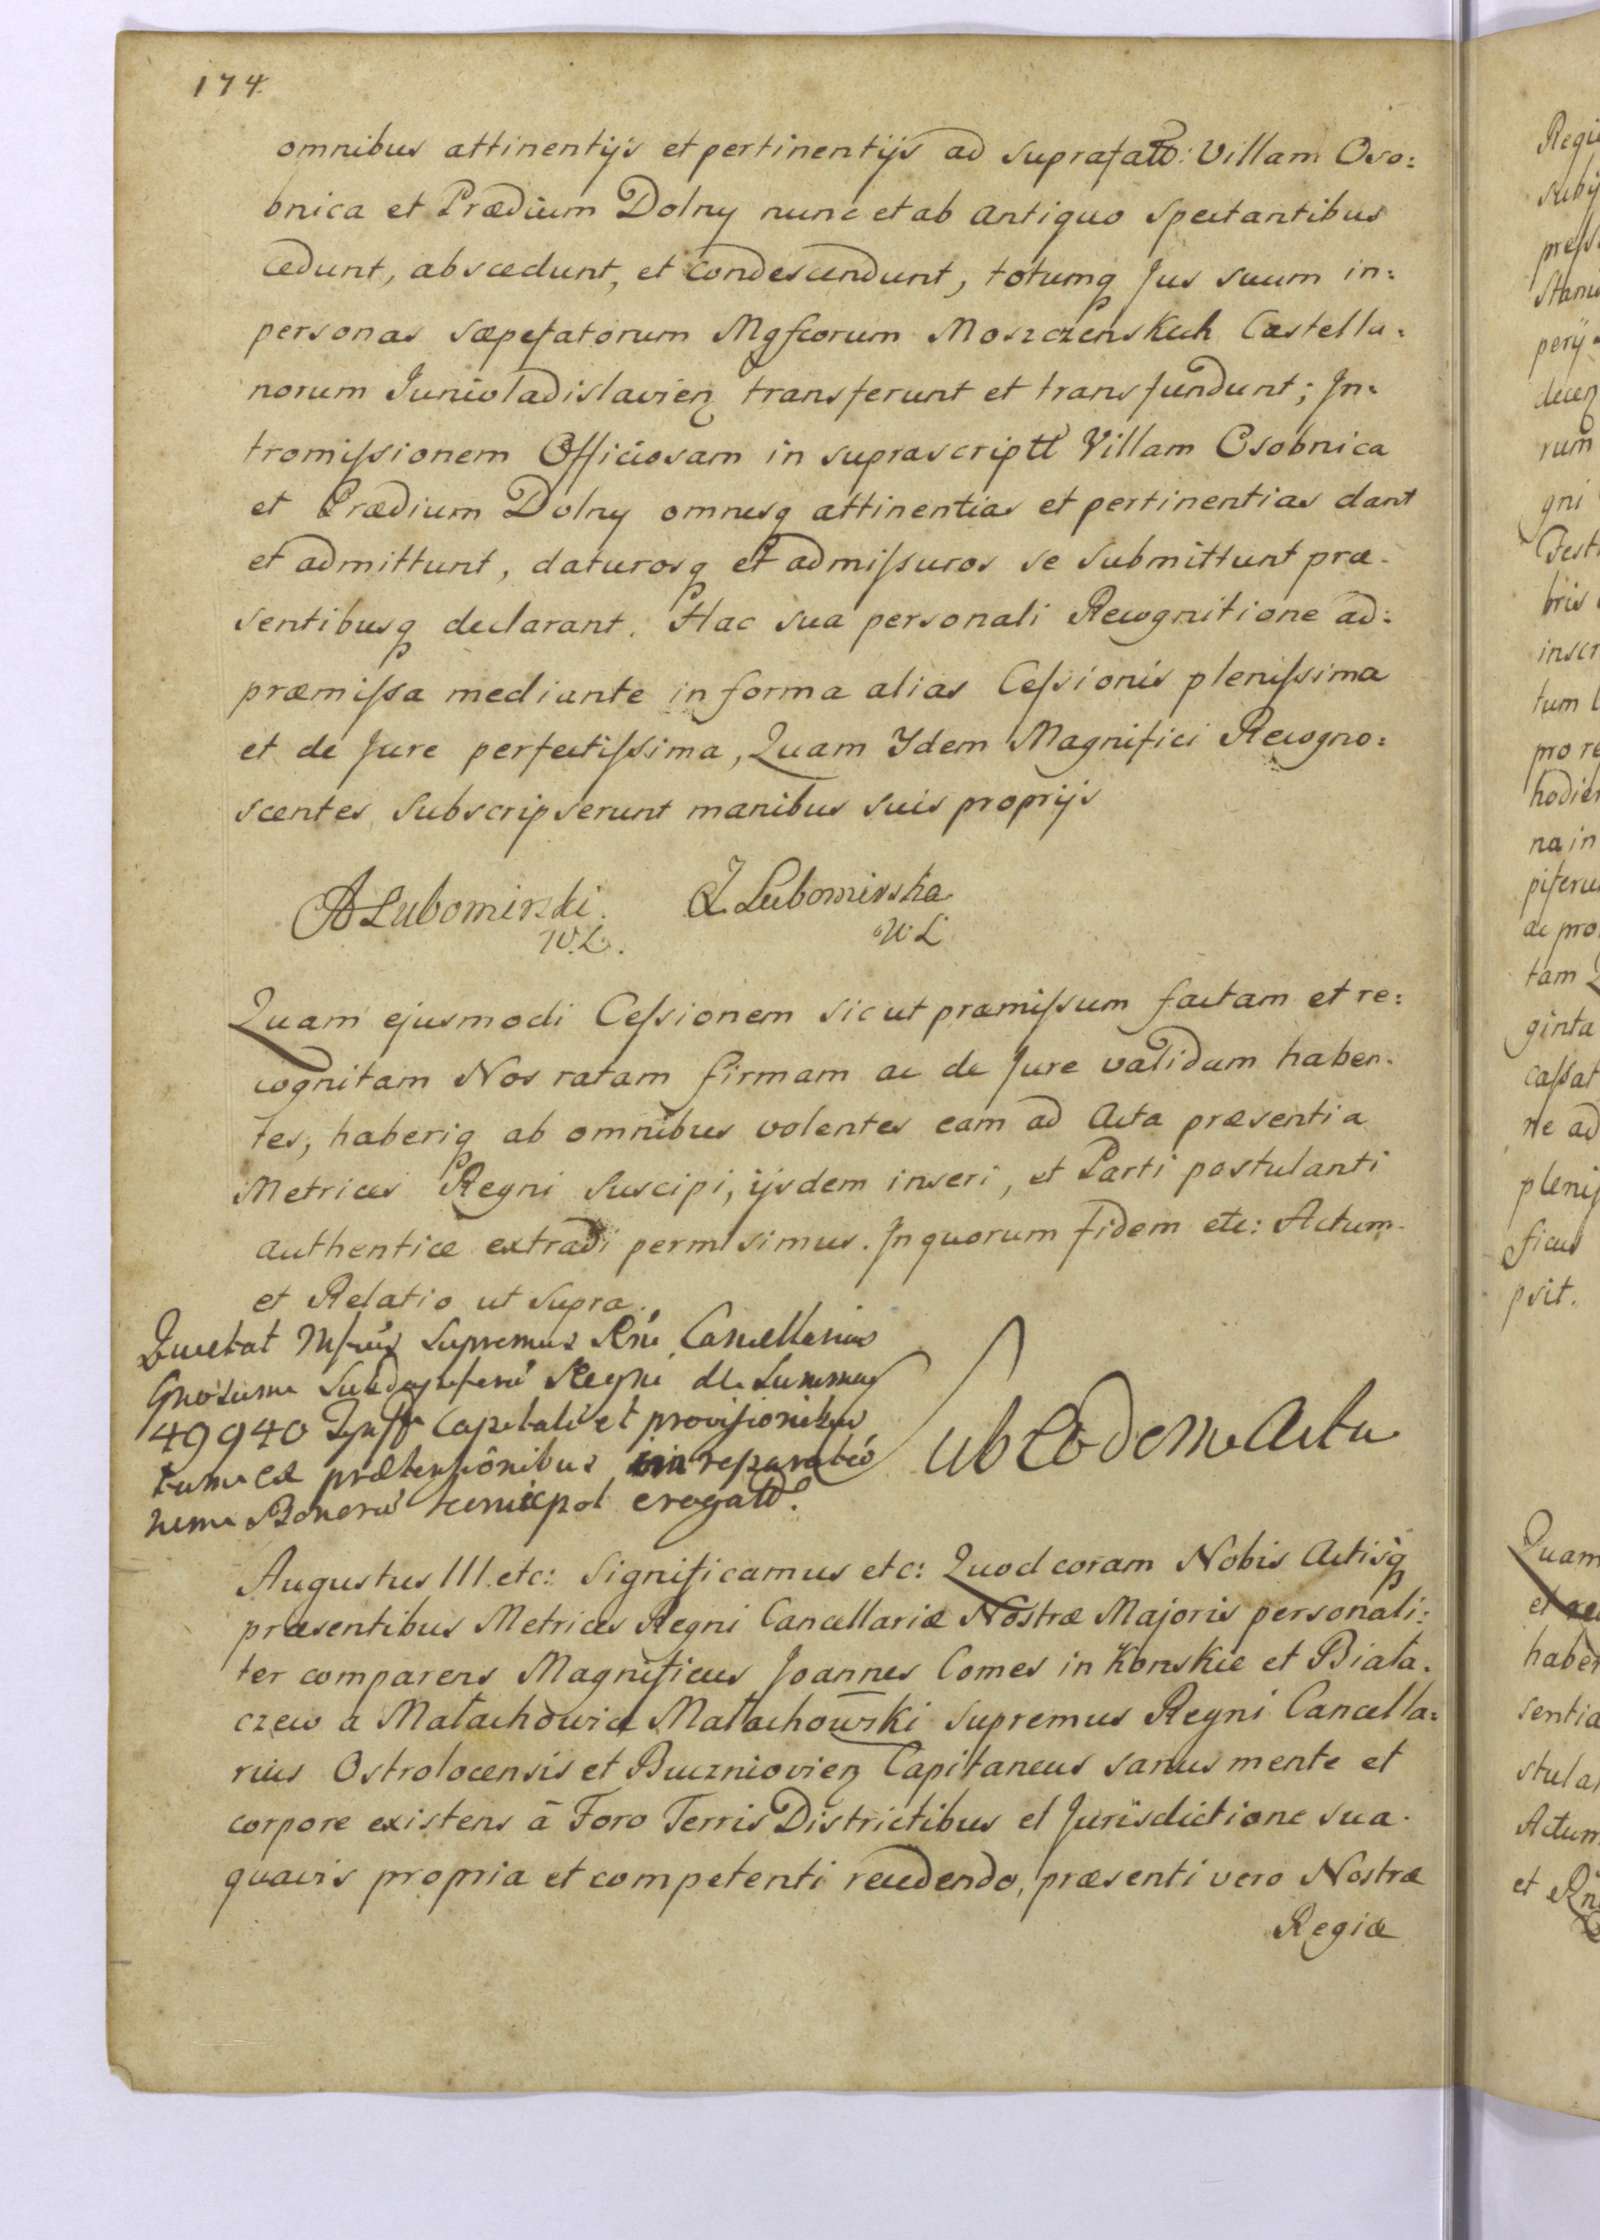 174.
omnibus attinentijs et pertinentijs ad suprafatt: Villam Oso:
bnica et Prædium Dolny nunc et ab antiquo spectantibus
cedunt, abscedunt, et condescendunt, totumq Jus suum in:
personas sæpefatorum Mgfcorum Moszczenskich Castella:
norum Junivladislavien transferunt et transfundunt; Jn:
tromiſsionem Officiosam in suprascriptt Villam Osobnica
et Prædium Dolny omnesq attinentias et pertinentias dant
et admittunt, daturosq et admiſsuros se submittunt præ-
sentibusq declarant. Hac sua personali Recognitione ad:
præmiſsa mediante in forma alias Ceſsionis pleniſsima
et de Jure perfectiſsima, Quam Ydem Magnifici Recogno:
scentes subscripserunt manibus suis proprijs
A Lubomirski. J Lubomirska
W.L. W.L
Quam ejusmodi Ceſsionem sicut præmiſsum factam et re:
cognitam Nos ratam firmam ac de Jure validam haben.
tes, haberiq ab omnibus volentes eam ad Acta præsentia
Metrices Regni suscipi, ijsdem inseri, et Parti postulanti
authentice extradi permisimus. Jn quorum fidem etc: Actum
et Relatio ut supra.
Supremus Cancellarius
Regni de Summa
49940 Capitali et provisionibus
prætensionibus in reparatio
Bonorum erogatt:
Sub Eodem Actu
Augustus III. etc: Significamus etc: Quod coram Nobis Actisq
præsentibus Metrices Regni Cancellariæ Nostræ Majoris personali:
ter comparens Magnificus Joannes Comes in Konskie et Biała.
czew a Małachowice Małachowski Supremus Regni Cancella:
rius Ostrolocensis et Buczniovien Capitaneus sanus mente et
corpore existens â Foro Terris Districtibus et Jurisdictione sua
quavis propria et competenti recedendo, præsenti vero Nostræ
Regiæ